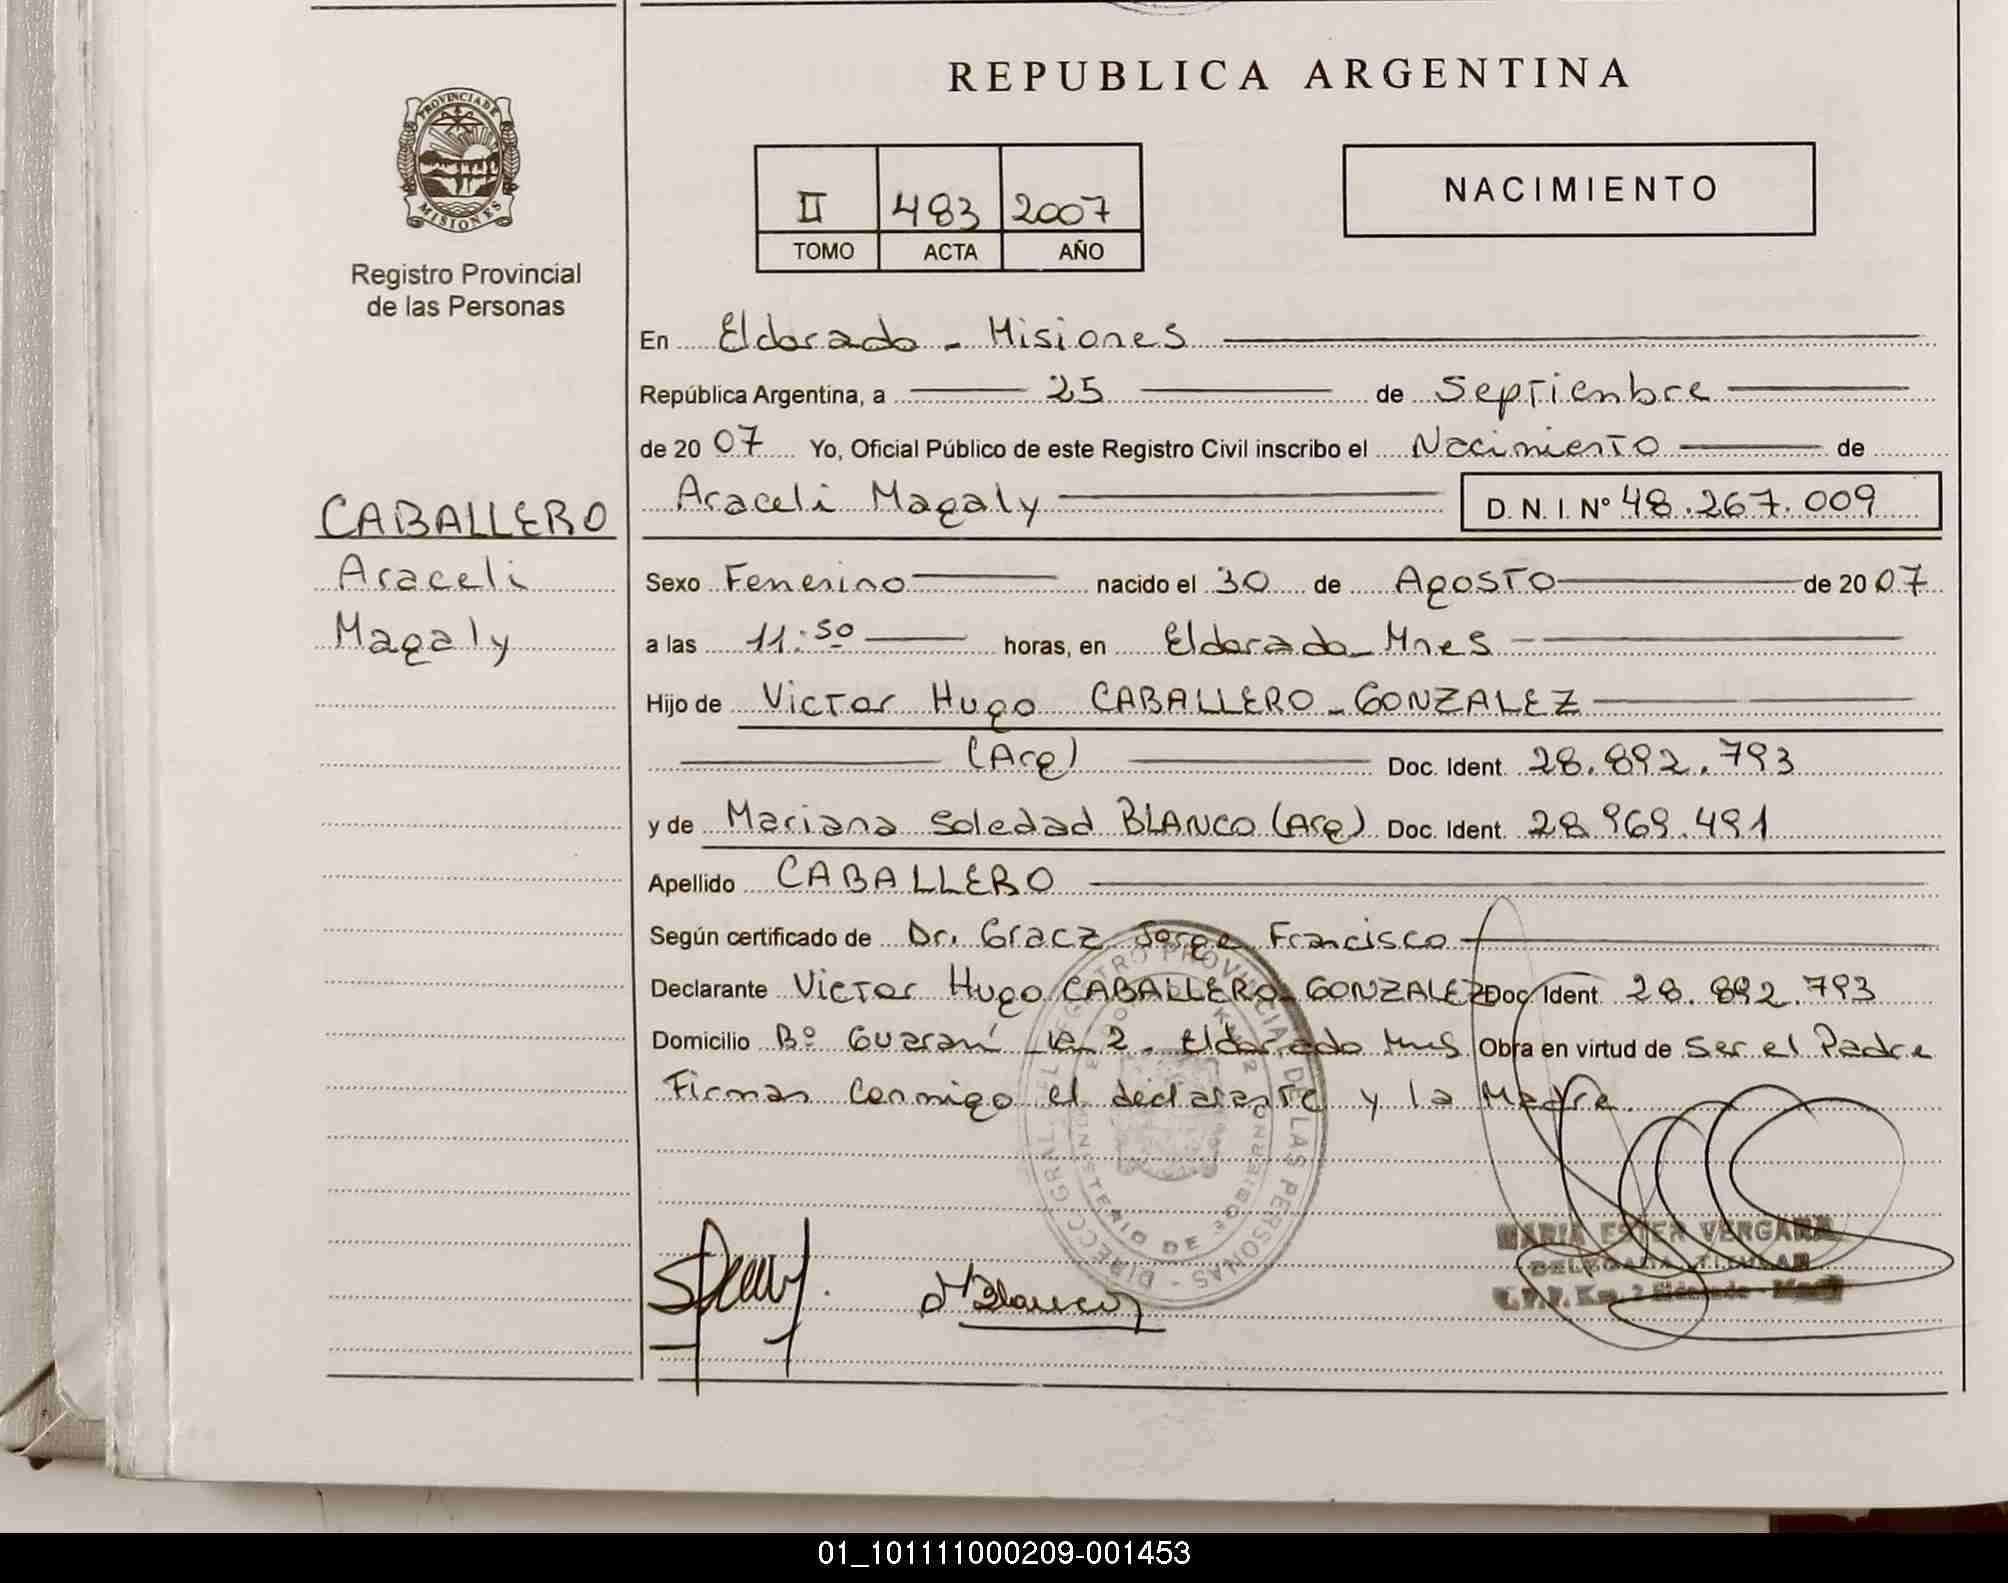 REPUBLICA ARGENTINA
PROVINCIA DE
MISIONES
Registro Provincial
de las Personas
II 483 2007
TOMO ACTA AÑO
NACIMIENTO
En Eldorado - Misiones
República Argentina, a 25 de Septiembre
de 2007 Yo, Oficial Público de este Registro Civil inscribo el Nacimiento de
Araceli Magaly D. N. I. Nº 48.267.009
CABALLERO
Araceli
Magaly
Sexo Femenino nacido el 30 de Agosto de 2007
a las 11:50 horas, en Eldorado - Mnes
Hijo de Victor Hugo CABALLERO - GONZALEZ
(Arg) Doc. Ident. 28.892.793
y de Mariana Soledad BLANCO (Arg) Doc. Ident. 28.969.491
Apellido CABALLERO
Según certificado de Dr. Gracz Jorge Francisco
Declarante Victor Hugo CABALLERO - GONZALEZ Doc. Ident. 28.892.793
Domicilio Bº Guaraní km 2. Eldorado Mnes Obra en virtud de Ser el Padre
Firman Conmigo el declarante y la Madre.
DIRECC. GRAL. DEL REGISTRO PROVINCIAL DE LAS PERSONAS
MINISTERIO DE GOBIERNO
MBlanco
MARIA ESTER VERGARA
DELEGADA TITULAR
R.P.P. Km. 2 Eldorado - Mnes
01_101111000209-001453